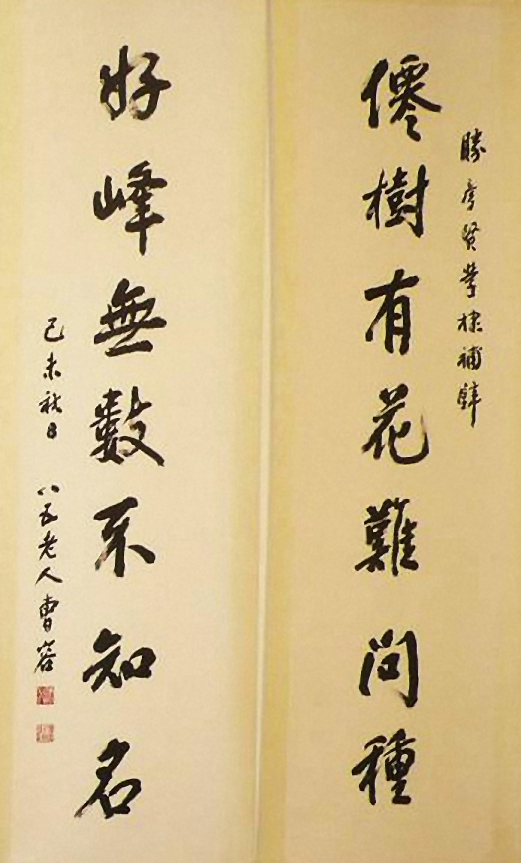 勝彥賢學棣補壁
僊樹有花難問種
好峰無數不知名
己未秋日 八五老人曹容